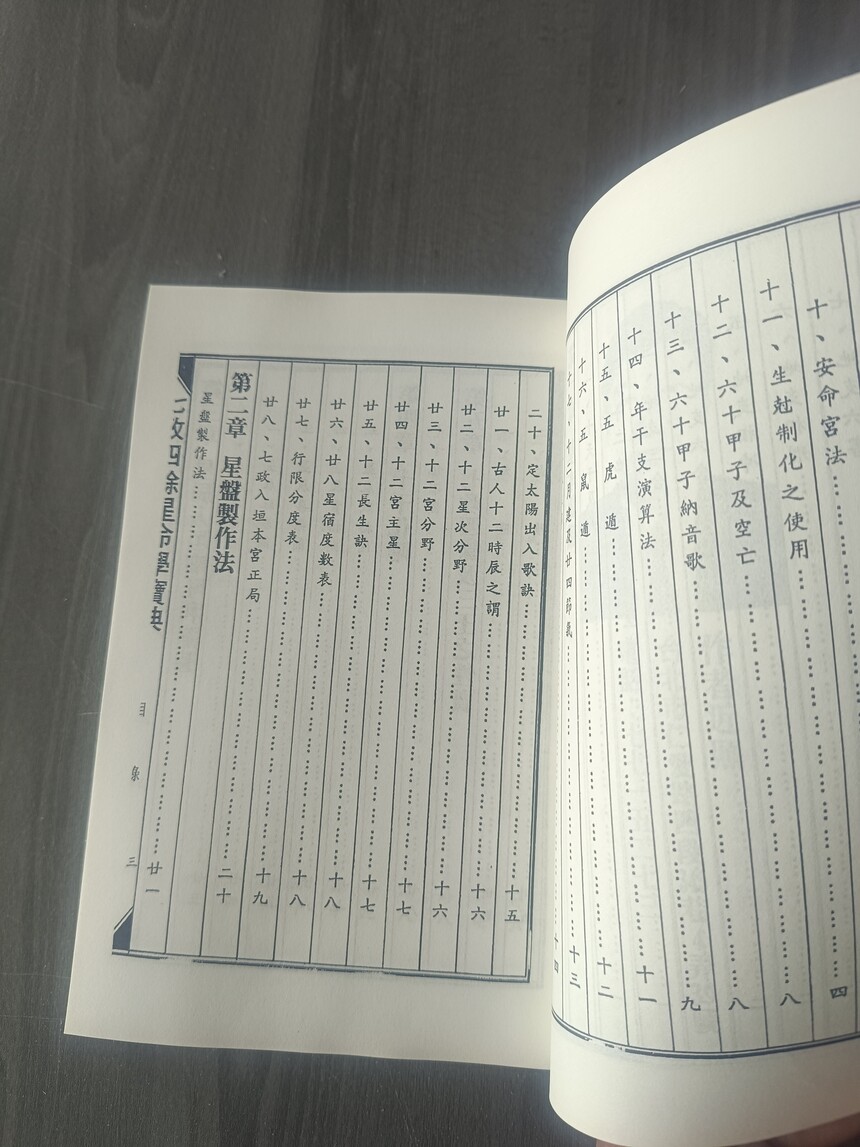 十、安命宮法……………………四
十一、生尅制化之使用……………………八
十二、六十甲子及空亡……………………八
十三、六十甲子納音歌……………………九
十四、年干支演算法……………………十一
十五、五虎遁……………………十二
十六、五鼠遁……………………十三
十七、十二月建及廿四節氣……………………十四
二十、定太陽出入歌訣……………………十五
廿一、古人十二時辰之謂……………………十六
廿二、十二星次分野……………………十六
廿三、十二宮分野……………………十七
廿四、十二宮主星……………………十七
廿五、十二長生訣……………………十八
廿六、廿八星宿度數表……………………十八
廿七、行限分度表……………………十九
廿八、七政入垣本宮正局……………………二十
第二章 星盤製作法
星盤製作法……………………廿一
七政四餘星命學寶典 目彔 三